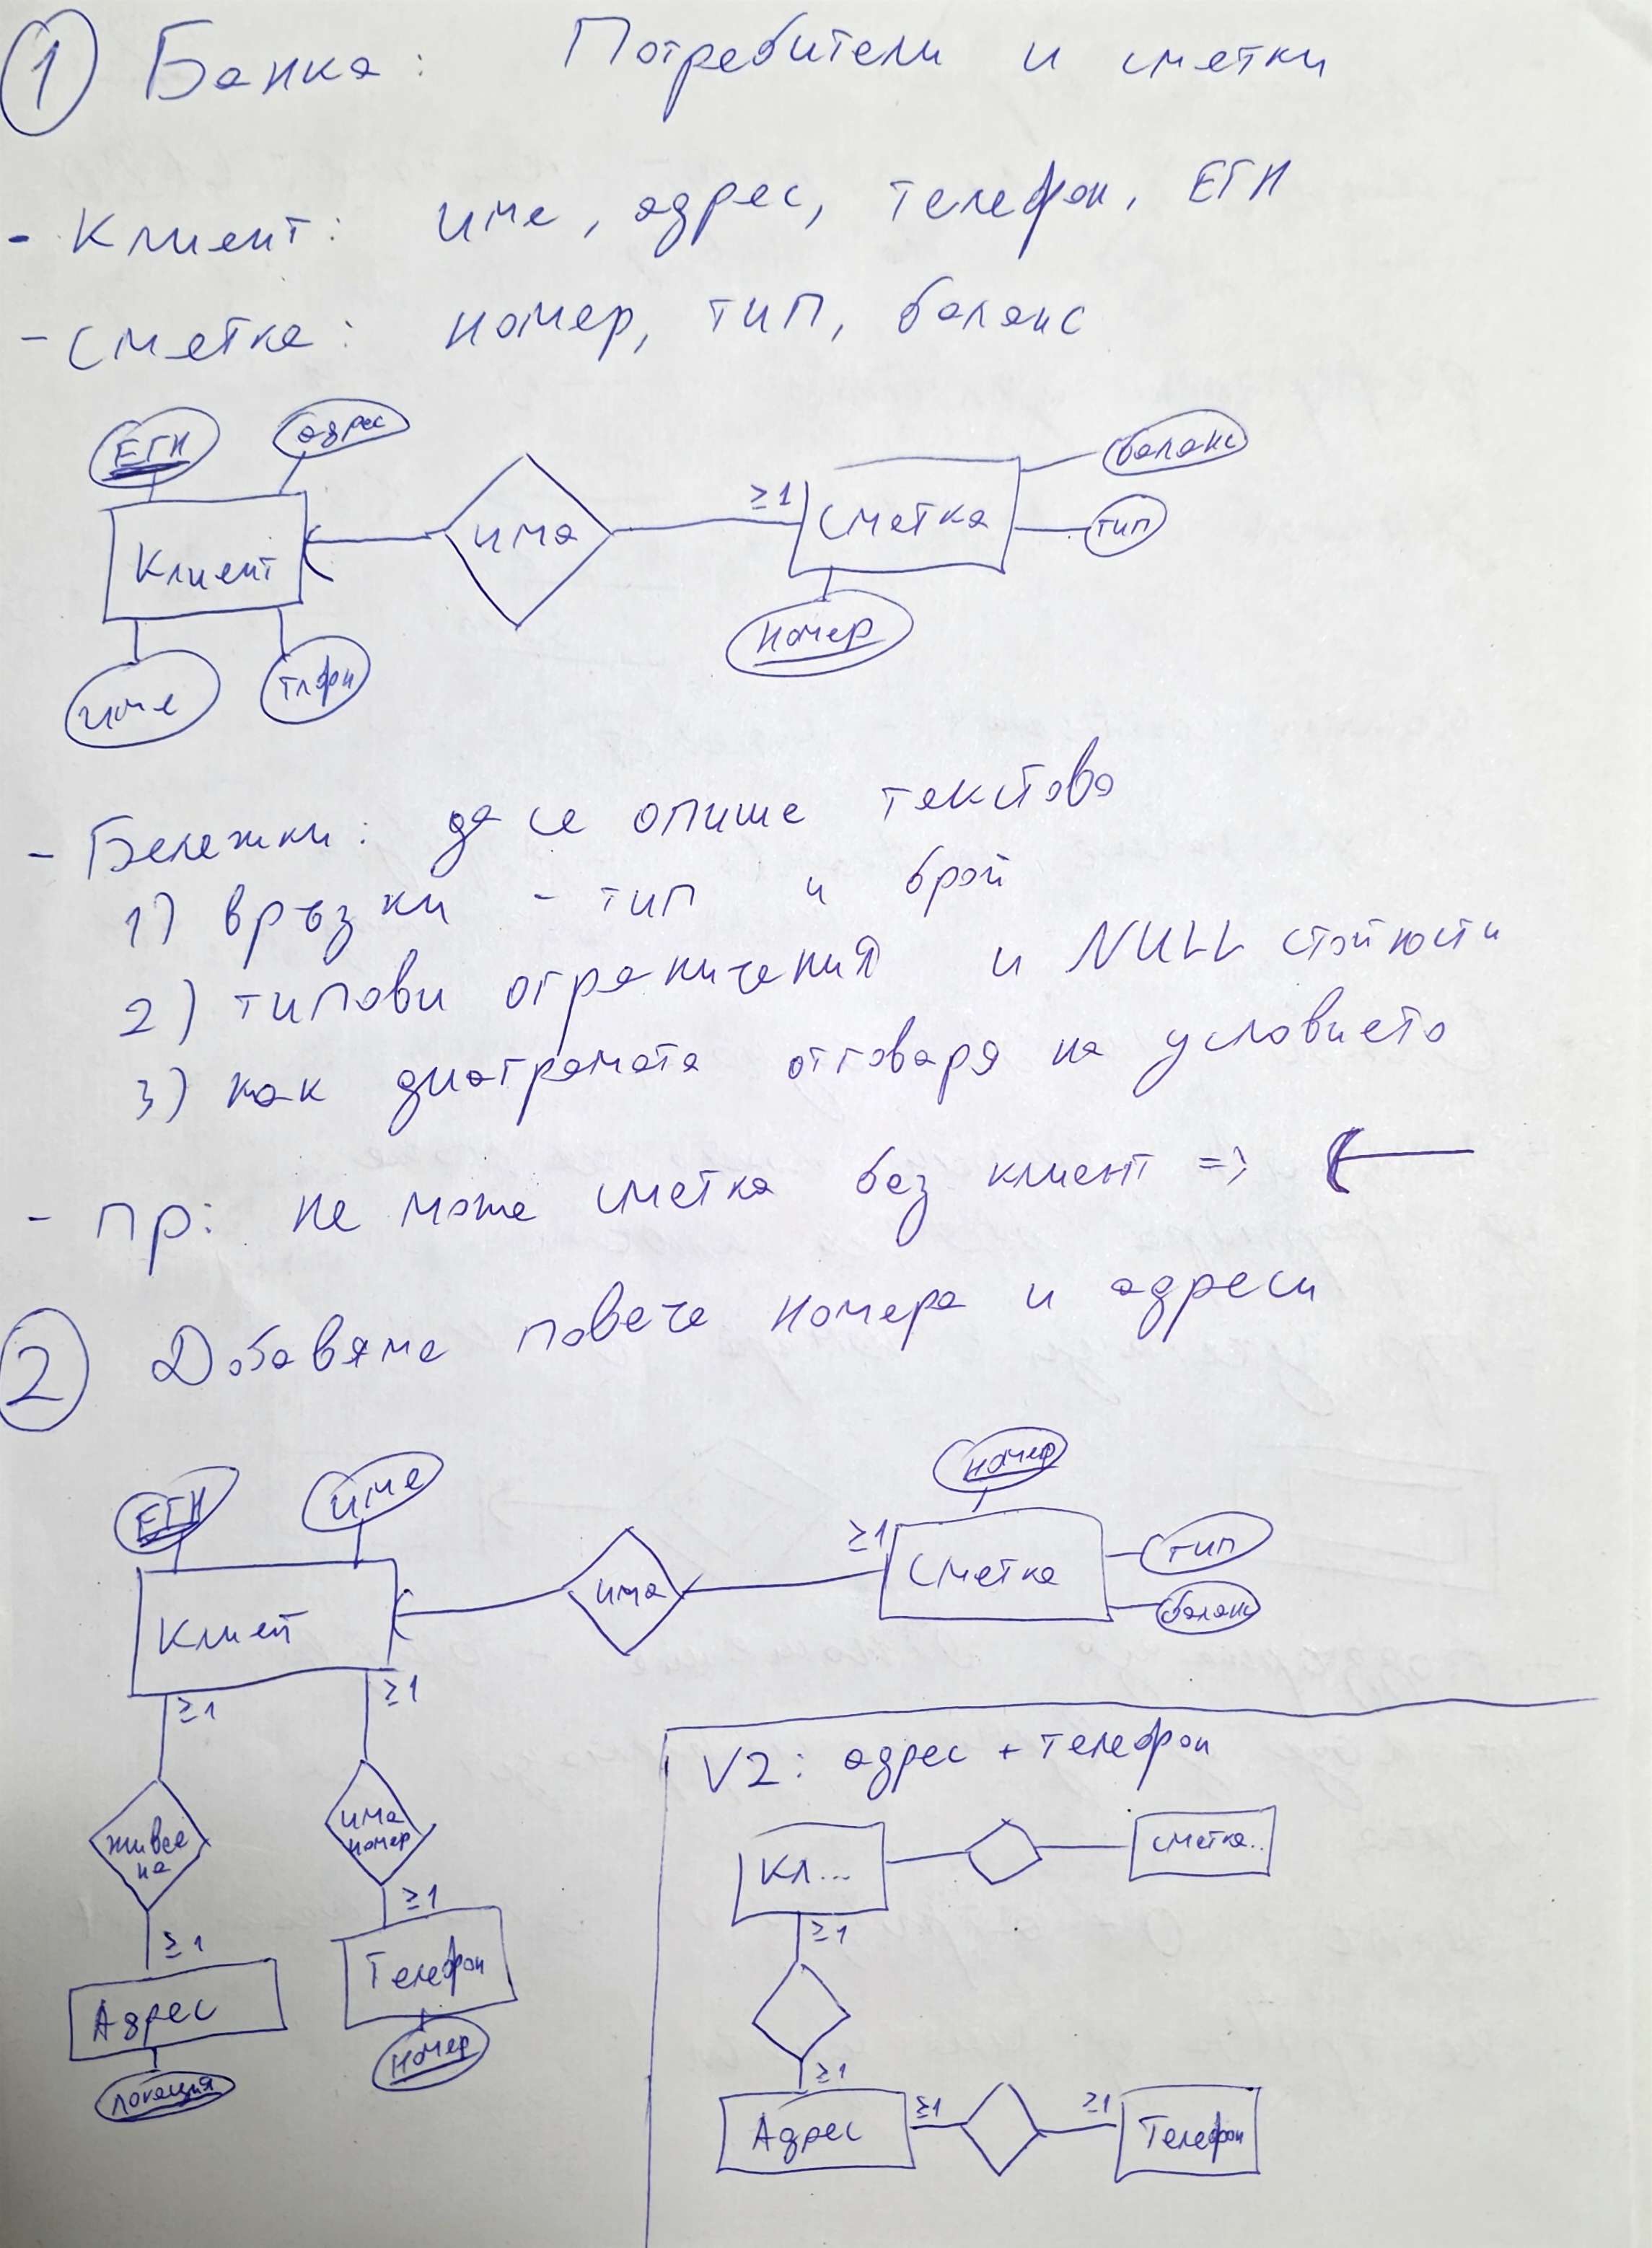 1 Банка: Потребители и сметки
- Клиент: име, адрес, телефон, ЕГН
- Сметка: номер, тип, баланс
ЕГН адрес баланс
Клиент има ≥1 сметка тип
име тлфн номер
- Бележки: да се опише текстово
1) връзки - тип и брой
2) типови ограничения и NULL стойности
3) как диаграмата отговаря на условието
- пр: не може сметка без клиент =>
2 Добавяме повече номера и адреси
ЕГН име номер
Клиент има ≥1 Сметка тип
баланс
≥1 ≥1
живее на
има номер
≥1 ≥1
Адрес Телефон
локация номер
V2: адрес + телефон
Кл... сметка..
≥1
≥1
Адрес ≥1 ≥1 Телефон